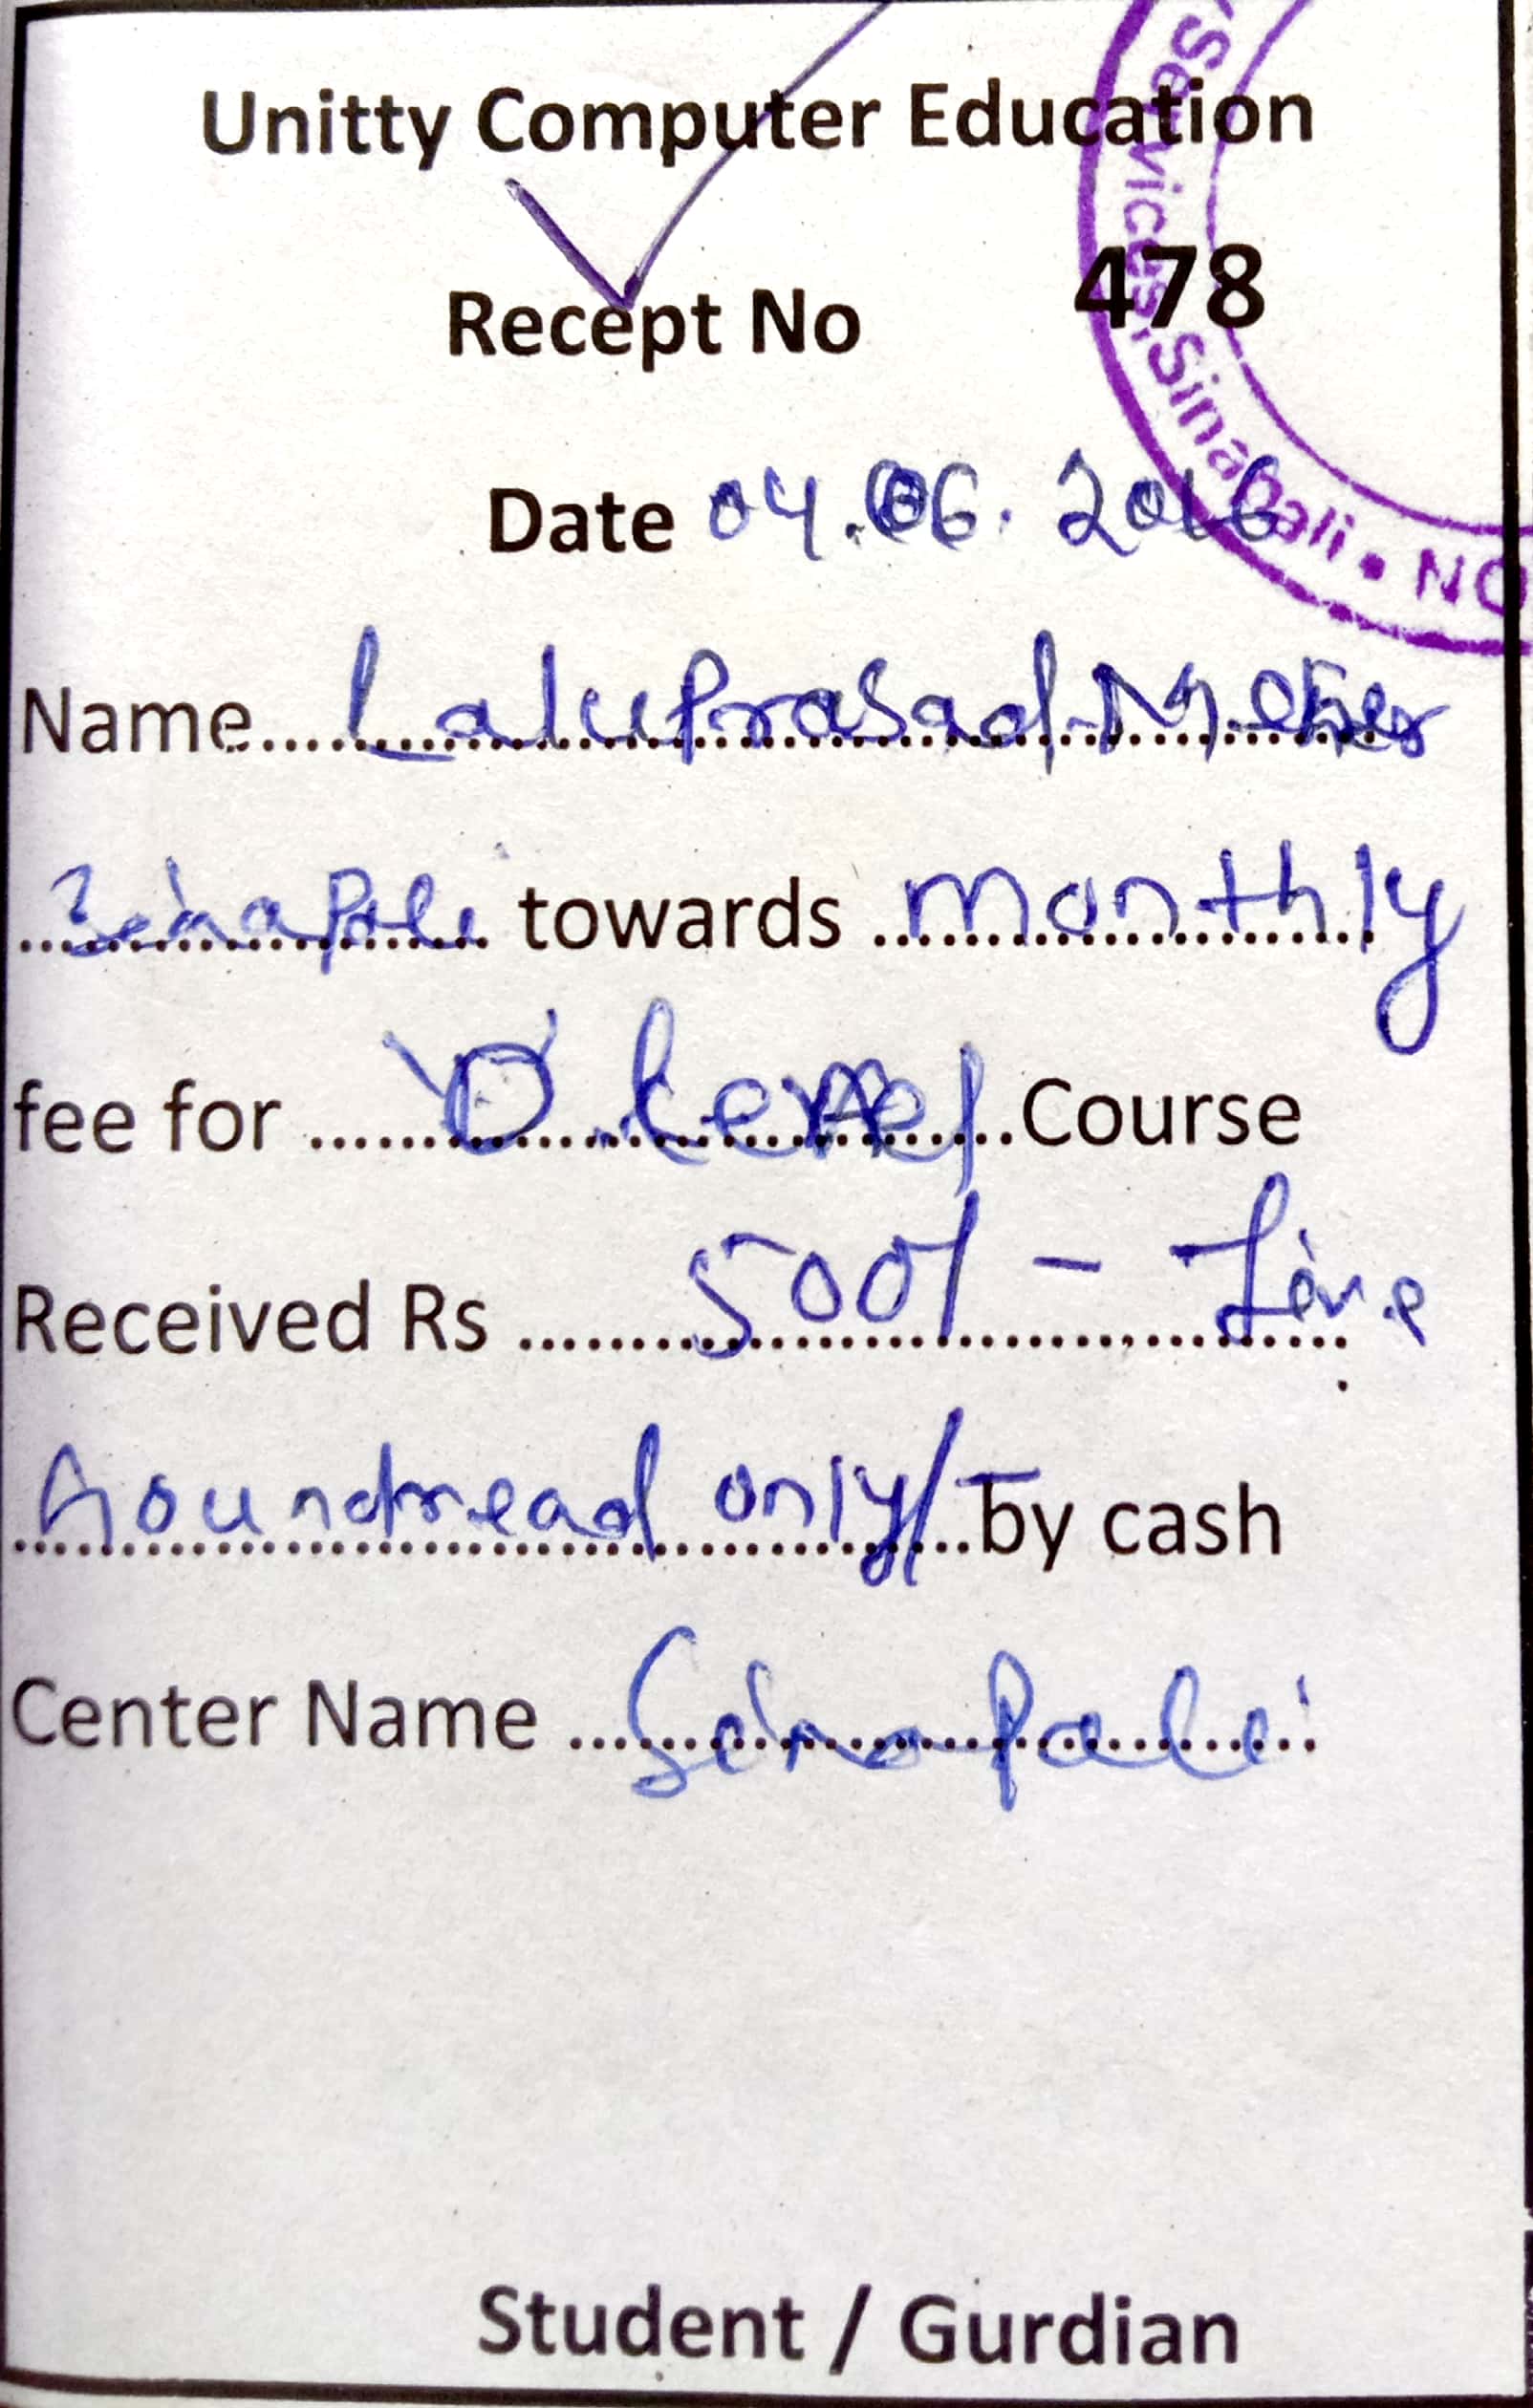 Unitty Computer Education
Recept No 478
Services, Sinapali • NO
Date 04.06.2016
Name.... Laluprasad Meher
Sinapali towards monthly
fee for 'O' Level Course
Received Rs 500/- Five
houndread only/- by cash
Center Name Sinapali
Student / Gurdian